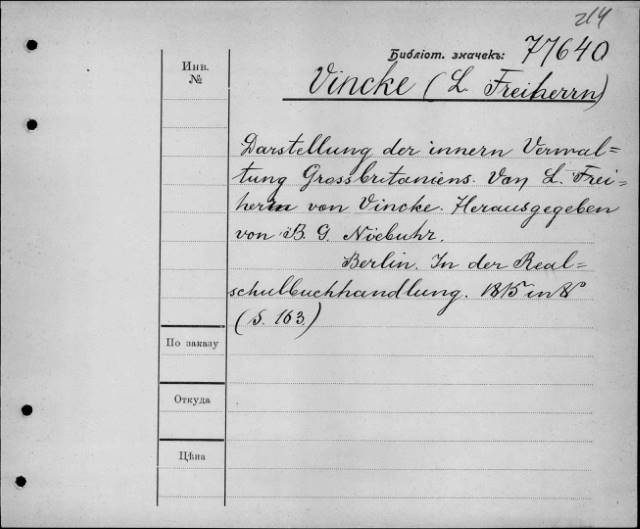 214
Библіот. значекъ: 77640
Инв.
№
Vincke (L. Freiherrn)
Darstellung der innern Verwal=
tung Grossbritaniens. Von L. Frei=
herrn von Vincke. Herausgegeben
von B. G. Niebuhr.
Berlin. In der Real=
schulbuchhandlung. 1815 in 8°
(S. 163.)
По заказу
Откуда
Цѣна